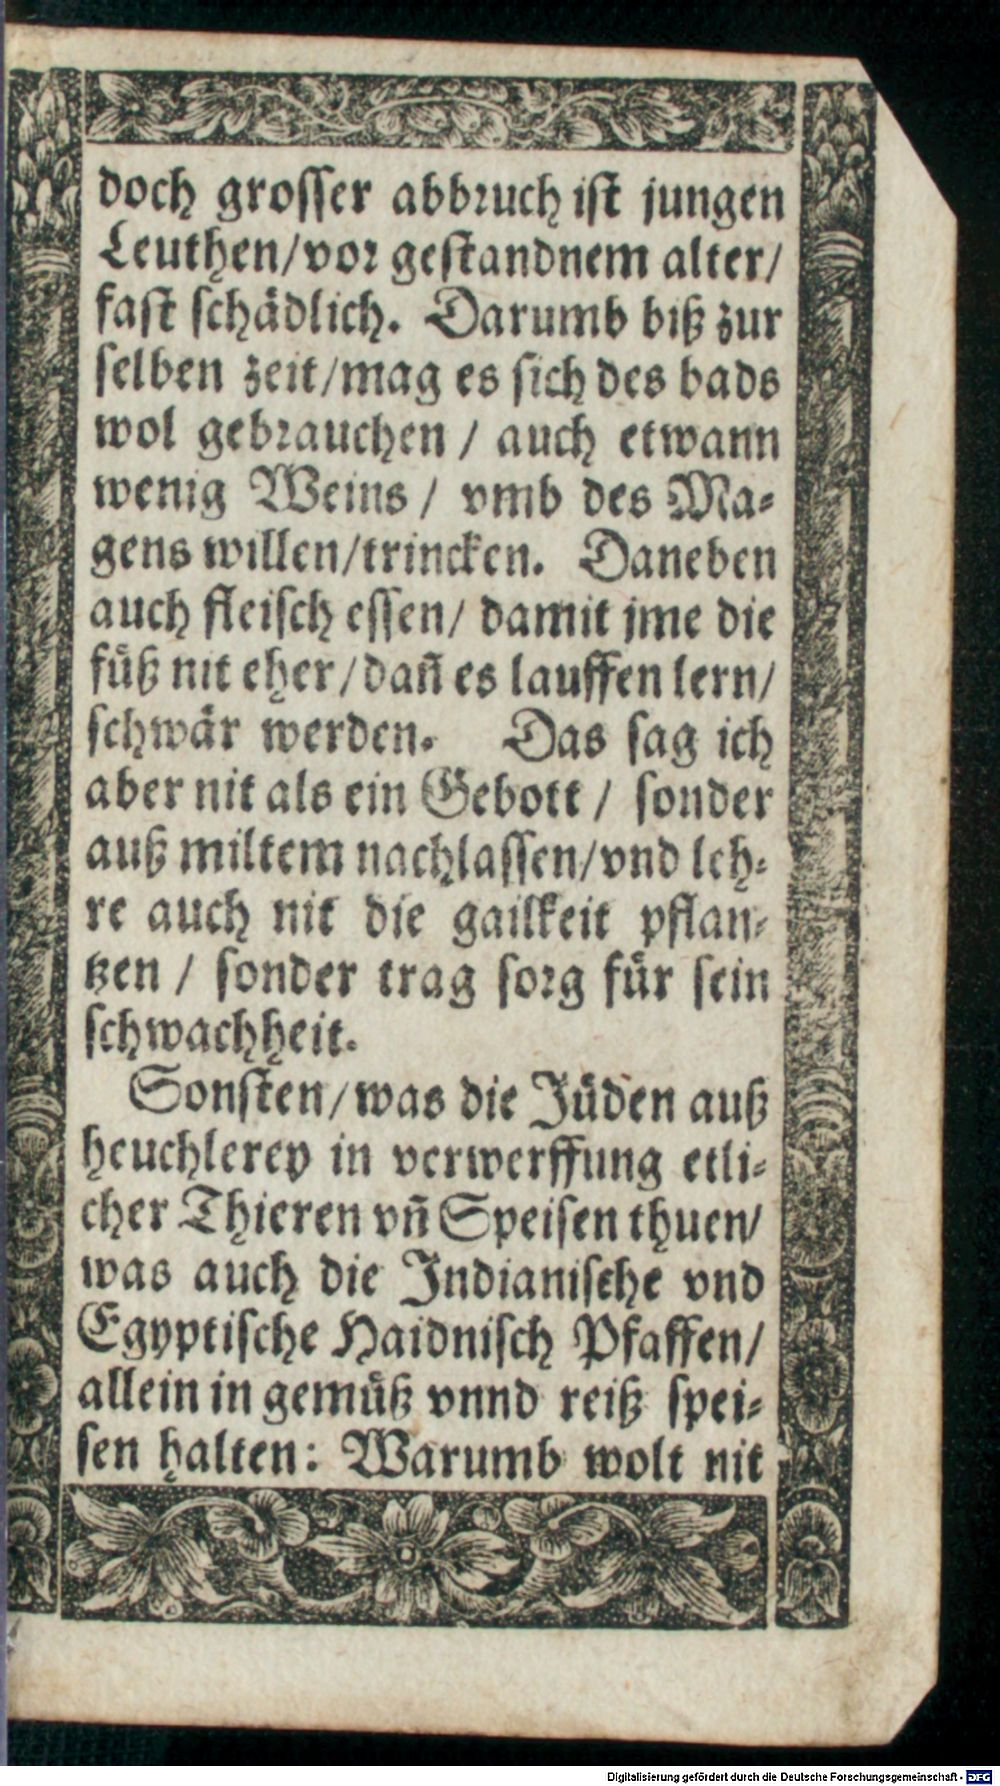 doch grosser abbruch ist jungen
Leuthen/vor gestandnem alter/
fast schädlich. Darumb biß zur
selben zeit/mag es sich des bads
wol gebrauchen / auch etwann
wenig Weins / vmb des Ma-
gens willen/trincken. Daneben
auch fleisch essen/ damit jme die
füß nit eher/dañ es lauffen lern/
schwär werden. Das sag ich
aber nit als ein Gebott / sonder
auß miltem nachlassen/vnd leh-
re auch nit die gailkeit pflan-
tzen / sonder trag sorg für sein
schwachheit.
Sonsten/was die Jüden auß
heuchlerey in verwerffung etli-
cher Thieren vñ Speisen thuen/
was auch die Indianische vnd
Egyptische Haidnisch Pfaffen/
allein in gemüß vnnd reiß spei-
sen halten: Warumb wolt nit
Digitalisierung gefördert durch die Deutsche Forschungsgemeinschaft - DFG